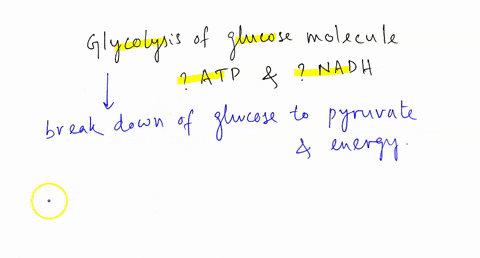 Glycolysis of glucose molecule
? ATP & ? NADH
break down of glucose to pyruvate
& energy.